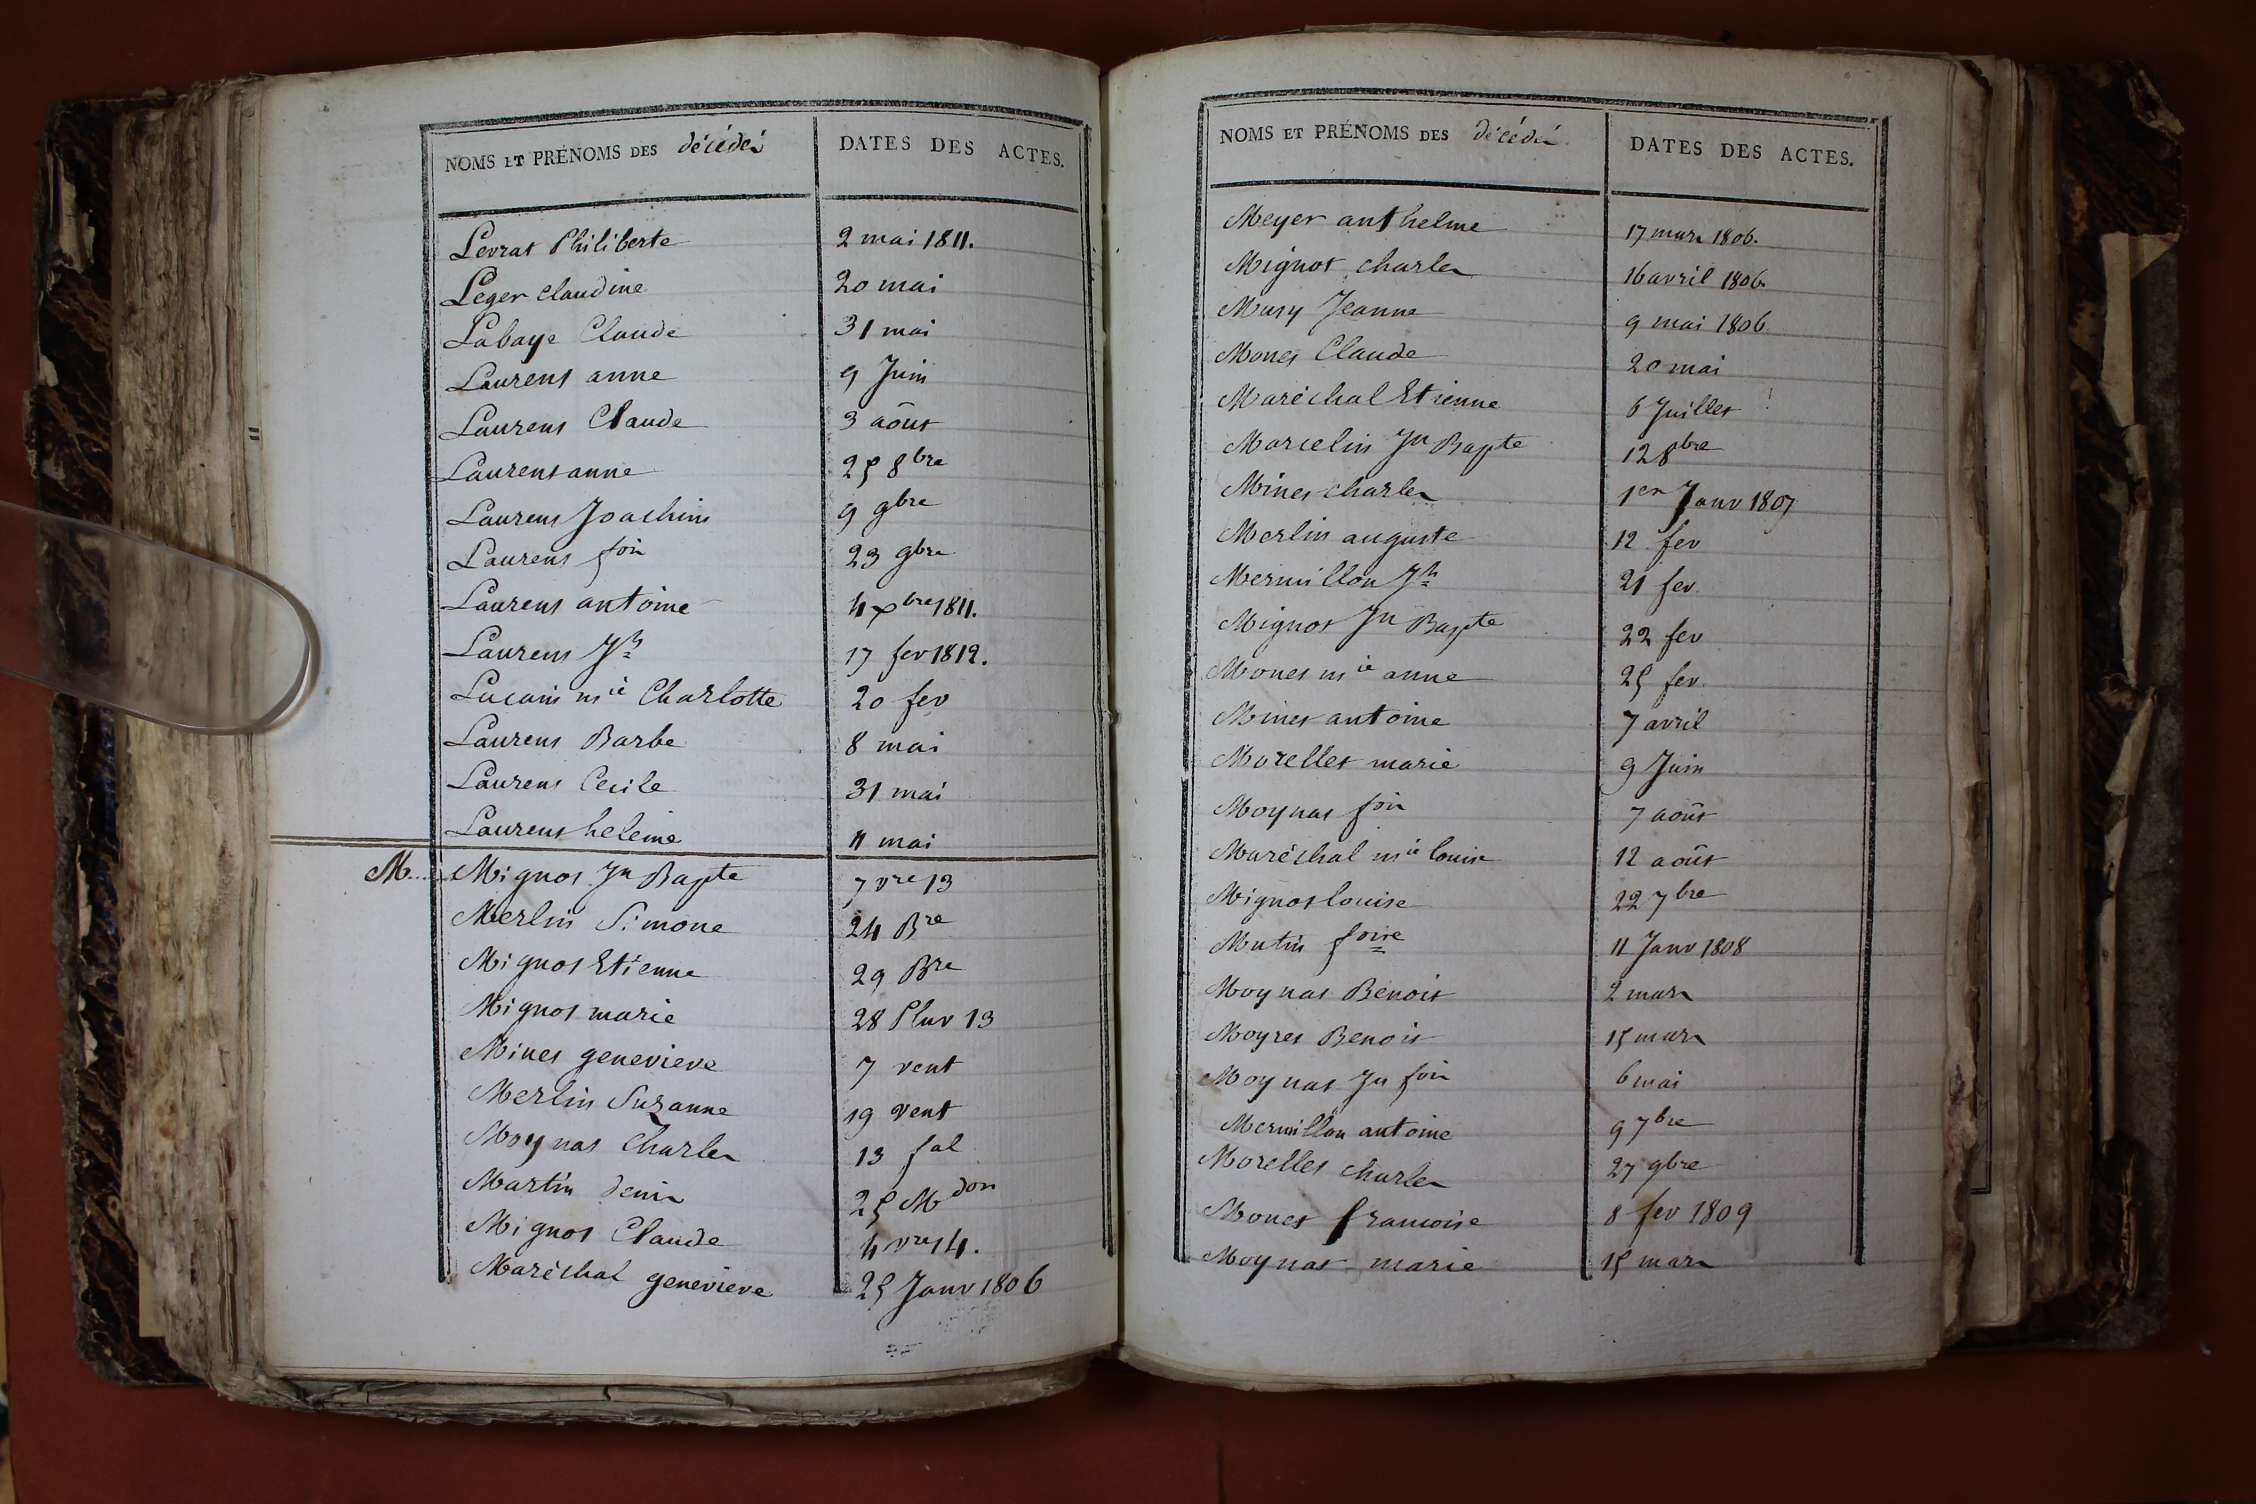 NOMS ET PRÉNOMS DES décédés DATES DES ACTES.
Levrat Philiberte 2 mai 1811.
Leger claudine 20 mai
Labaye Claude 31 mai
Laurent anne 9 Juin
Laurens Claude 3 août
Laurent anne 25 8bre
Laurens Joachim 9 9bre
Laurens fois 23 9bre
Laurens antoine 4 xbre 1811.
Laurens Jh 17 fev 1812.
mie Charlotte 20 fev
Laurens Barbe 8 mai
Laurens Cecile 31 mai
Laurens heleine 11 mai
M.... Mignot Jn Bapte 7 vre 13
Merlin Simone 24 Bre
Mignot Etienne 29 Bre
Mignot marie 28 Pluv 13
Mines genevieve 7 vent
Merlin Suzanne 19 vent
Moynat Charles 13 fal
Martin denis 25 Mdon
Mignot Claude 4 vre 14.
Maréchal genevieve 25 Janv 1806
NOMS ET PRÉNOMS DES décédés DATES DES ACTES.
Meyer anthelme 17 mars 1806.
Mignot charles 16 avril 1806.
Mury Jeanne 9 mai 1806
Monet Claude 20 mai
Maréchal Etienne 6 Juillet
Marcelin Jn Bapte 12 8bre
Mines charles 1er Janv 1807
Merlin auguste 12 fev
Mermillon Jh 21 fev
Mignot Jn Bapte 22 fev
Monet mie anne 25 fev
Mines antoine 7 avril
Morellet marie 9 Juin
Moynat fois 7 août
Maréchal mie louise 12 août
Mignot louise 22 7bre
Mutin foise 11 Janv 1808
Moynat Benoit 2 mars
Moyret Benoit 15 mars
Moynat Jn fois 6 mai
Mermillon antoine 9 7bre
Morellet charles 27 9bre
Monet francoise 8 fev 1809
Moynat marie 15 mars